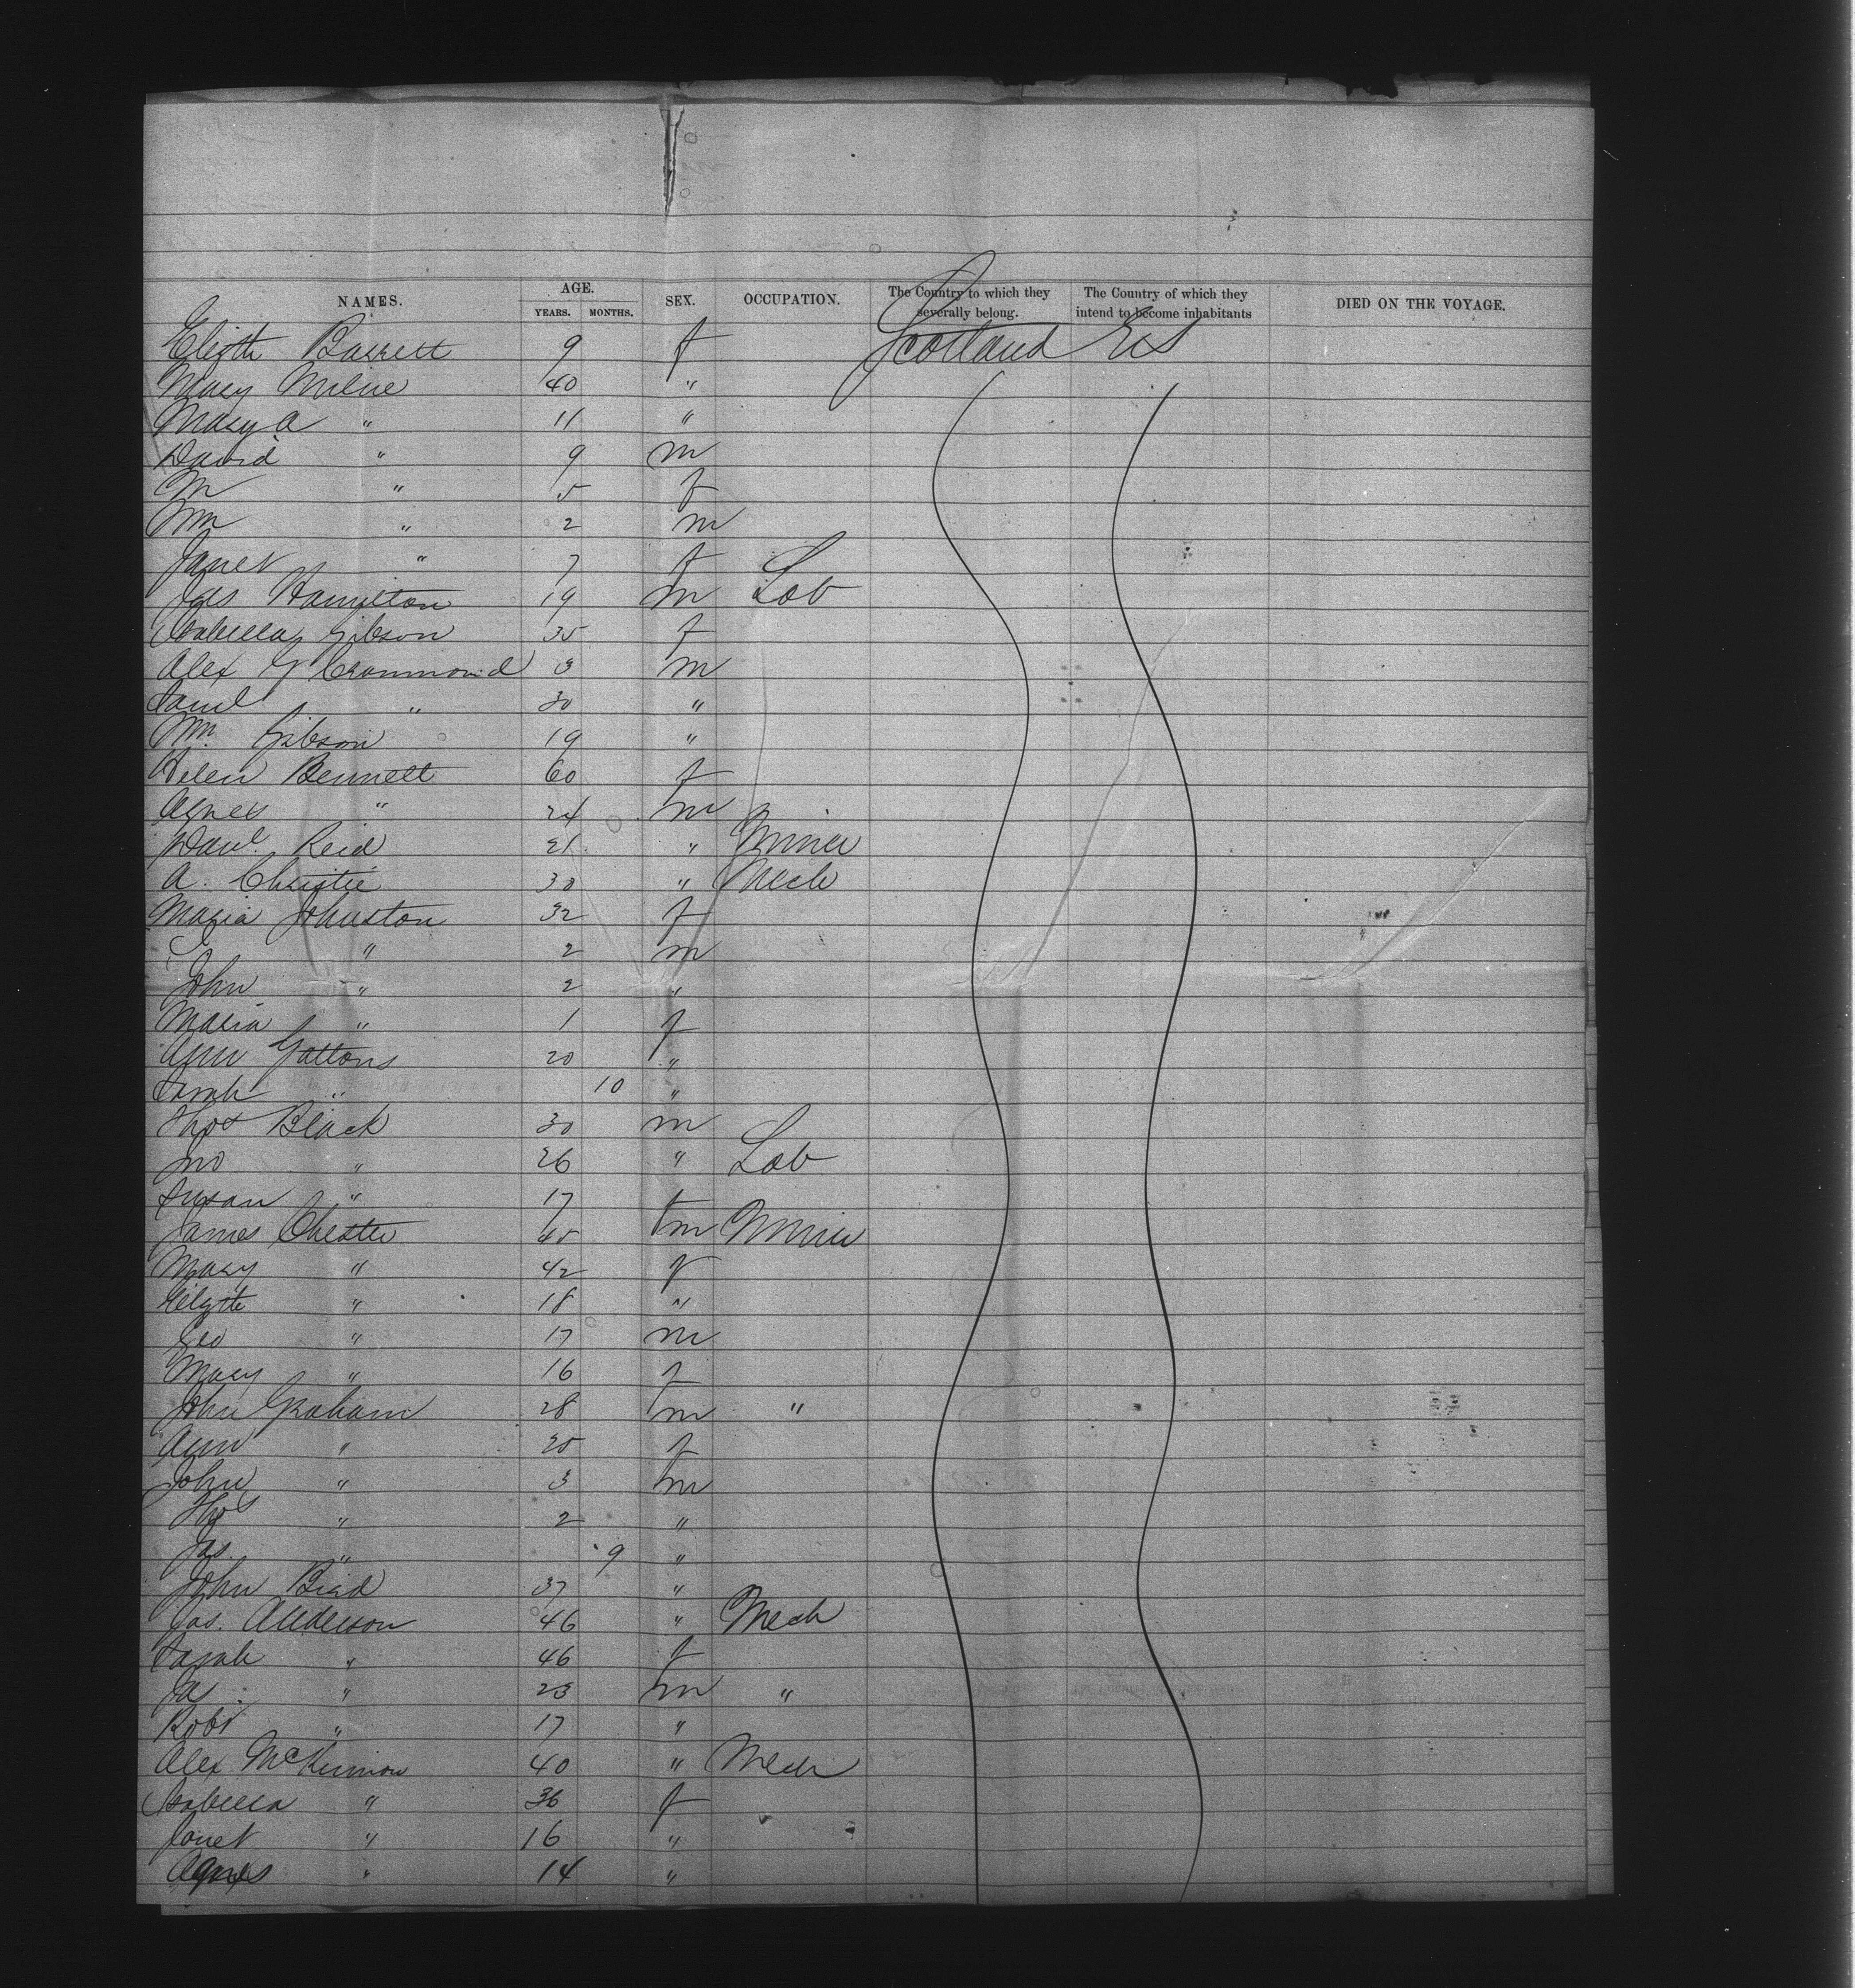 NAMES. AGE. YEARS. MONTHS. SEX. OCCUPATION. The Country to which they severally belong. The Country of which they intend to become inhabitants DIED ON THE VOYAGE.
Elizth Barrett 9 f Scotland US
Mary Milne 40 "
Mary A " 11 "
David " 9 m
M " 5 f
Wm " 2 m
Janet " 7 f
Jas Hamilton 19 m Lab
Isabella Gibson 35 f
Alex G Crammond 3 m
Saml " 30 "
Wm Gibson 19 "
Helen Bennett 60 f
Agnes " 24 m
Danl Reid 21 " Miner
A. Christie 30 " Mech
Maria Johnston 32 f
" 2 m
John " 2 "
Maria " 1 f
Ann Gattons 20 "
Sarah " 10 "
Thos Black 30 m
Jno " 26 " Lab
Susan " 17 f
James Chester 45 m Miner
Mary " 42 f
Elizth " 18 "
Geo " 17 m
Mary " 16 f
John Graham 28 m "
Ann " 25 f
John " 3 m
Thos " 2 "
Jas. " 9 "
John Bird 37 "
Jas. Anderson 46 " Mech
Sarah " 46 f
Jas " 23 m "
Robt " 17 "
Alex McKinnon 40 " Mech
Isabella " 36 f
Janet " 16 "
Agnes " 14 "